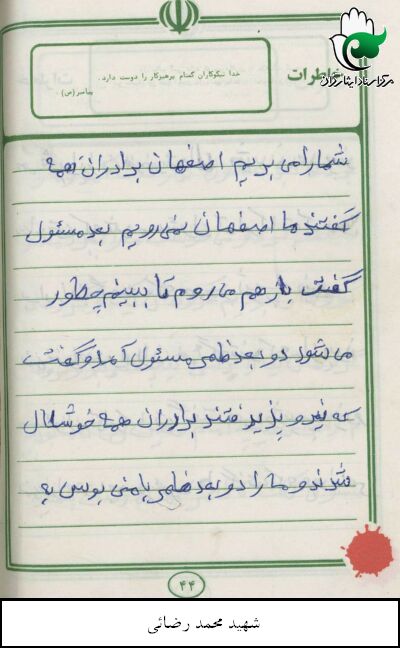 مرکز اسناد ایثارگران
خاطرات
خدا نیکوکاران گمنام پرهیزکار را دوست دارد.
پیامبر(ص).
شما را می بریم اصفهان برادران همه
گفتند ما اصفهان نمی رویم بعد مسئول
گفت باز هم می روم تا ببینم چطور
می شود دو بعد ظهر مسئول آمد و گفت
که نیرو پذیرفتند برادران همه خوشحال
شدند و ما را دو بعد ظهر با مینی بوس به
۴۴
شهید محمد رضائی